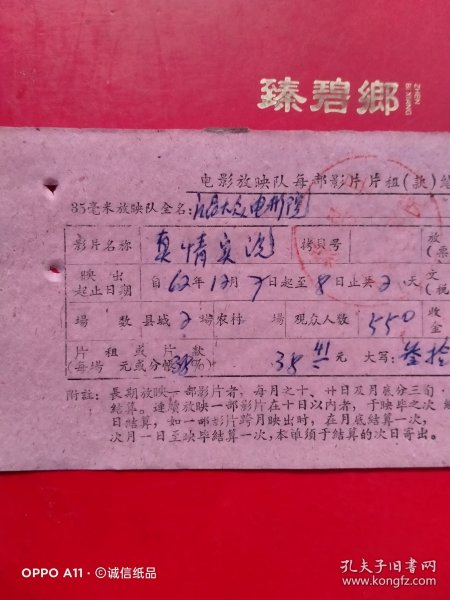 臻碧鄉
ZHEN
BI XIANG
电影放映队每部影片片租(款)结
35毫米放映队全名: 大众电影院
影片名称 真情实况 拷贝号 放
(票
映出
起止日期 自62年12月7日起至8日止共2天 文
(税
場数 县城2場农村 場 观众人数 550 收
金
片租或片款
(每場 元或分帳38%) 38.41元 大写: 叁拾
附註: 長期放映一部影片者, 每月之十、廿日及月底分三旬
結算。連續放映一部影片在十日以內者, 于映毕之次 結
日結算, 如一部影片跨月映出时, 在月底結算一次,
次月一日至映毕結算一次, 本单须于結算的次日寄出。
OPPO A11 · ©诚信纸品
孔夫子旧书网
www.kongfz.com